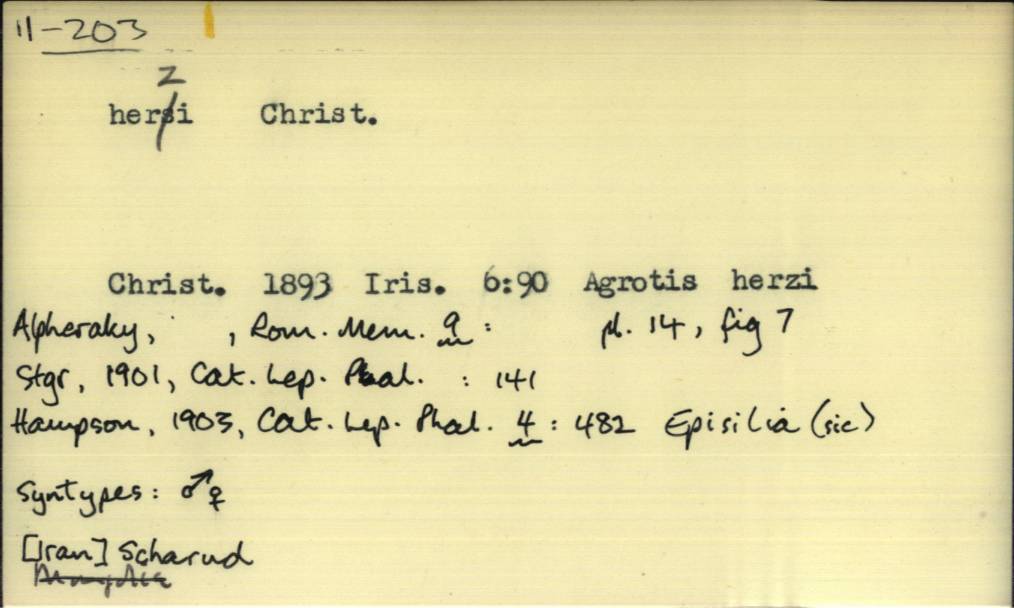 11-203
z
hersi Christ.
Christ. 1893 Iris. 6:90 Agrotis herzi
Alpheraky, , Rom. Mem. 9 : pl. 14, fig 7
Stgr, 1901, Cat. Lep. Pal. : 141
Hampson, 1903, Cat. Lep. Phal. 4 : 482 Episilia (sic)
Syntypes: ♂♀
[Iran] Scharud